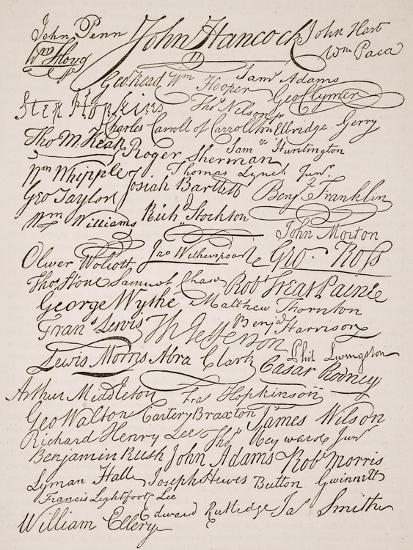 John Penn John Hancock John Hart
Wm Floyd Wm Paca
Geo Read Wm Hooper Saml Adams
Geo Clymer
Step Hopkins Thos Nelson jr
Charles Carroll of Carrollton Elbridge Gerry
Tho M. Kean Roger Sherman Saml Huntington
Wm Whipple Thomas Lynch Junr
Josiah Bartlett Benj Franklin
Geo Taylor
Wm Williams Richd Stockton
John Morton
Oliver Wolcott Jno Witherspoon Geo. Ross
Thos Stone Samuel Chase Robt Treat Paine
George Wythe Matthew Thornton
Frans Lewis Th Jefferson Benja Harrison
Lewis Morris Abra Clark Phil Livingston
Casar Rodney
Arthur Middleton Fras Hopkinson
Geo Walton Carter Braxton James Wilson
Richard Henry Lee Thos Heywards Junr
Benjamin Rush John Adams Robt Morris
Lyman Hall Joseph Hewes Button Gwinnett
Francis Lightfoot Lee
William Ellery Edward Rutledge Jas Smith